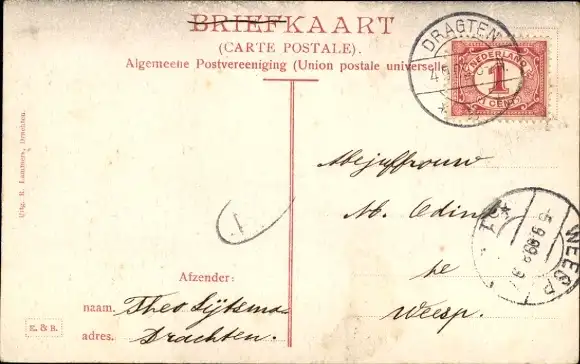 BRIEFKAART
(CARTE POSTALE).
Algemeene Postvereeniging (Union postale universelle
DRAGTEN
NEDERLAND
1
CENT
Mejuffrouw
M. Odink
te
Weesp.
WEESP
1
Afzender:
naam. Theo Sijtsma
adres. Drachten.
E. & B.
Uitg. R. Lammers, Drachten.